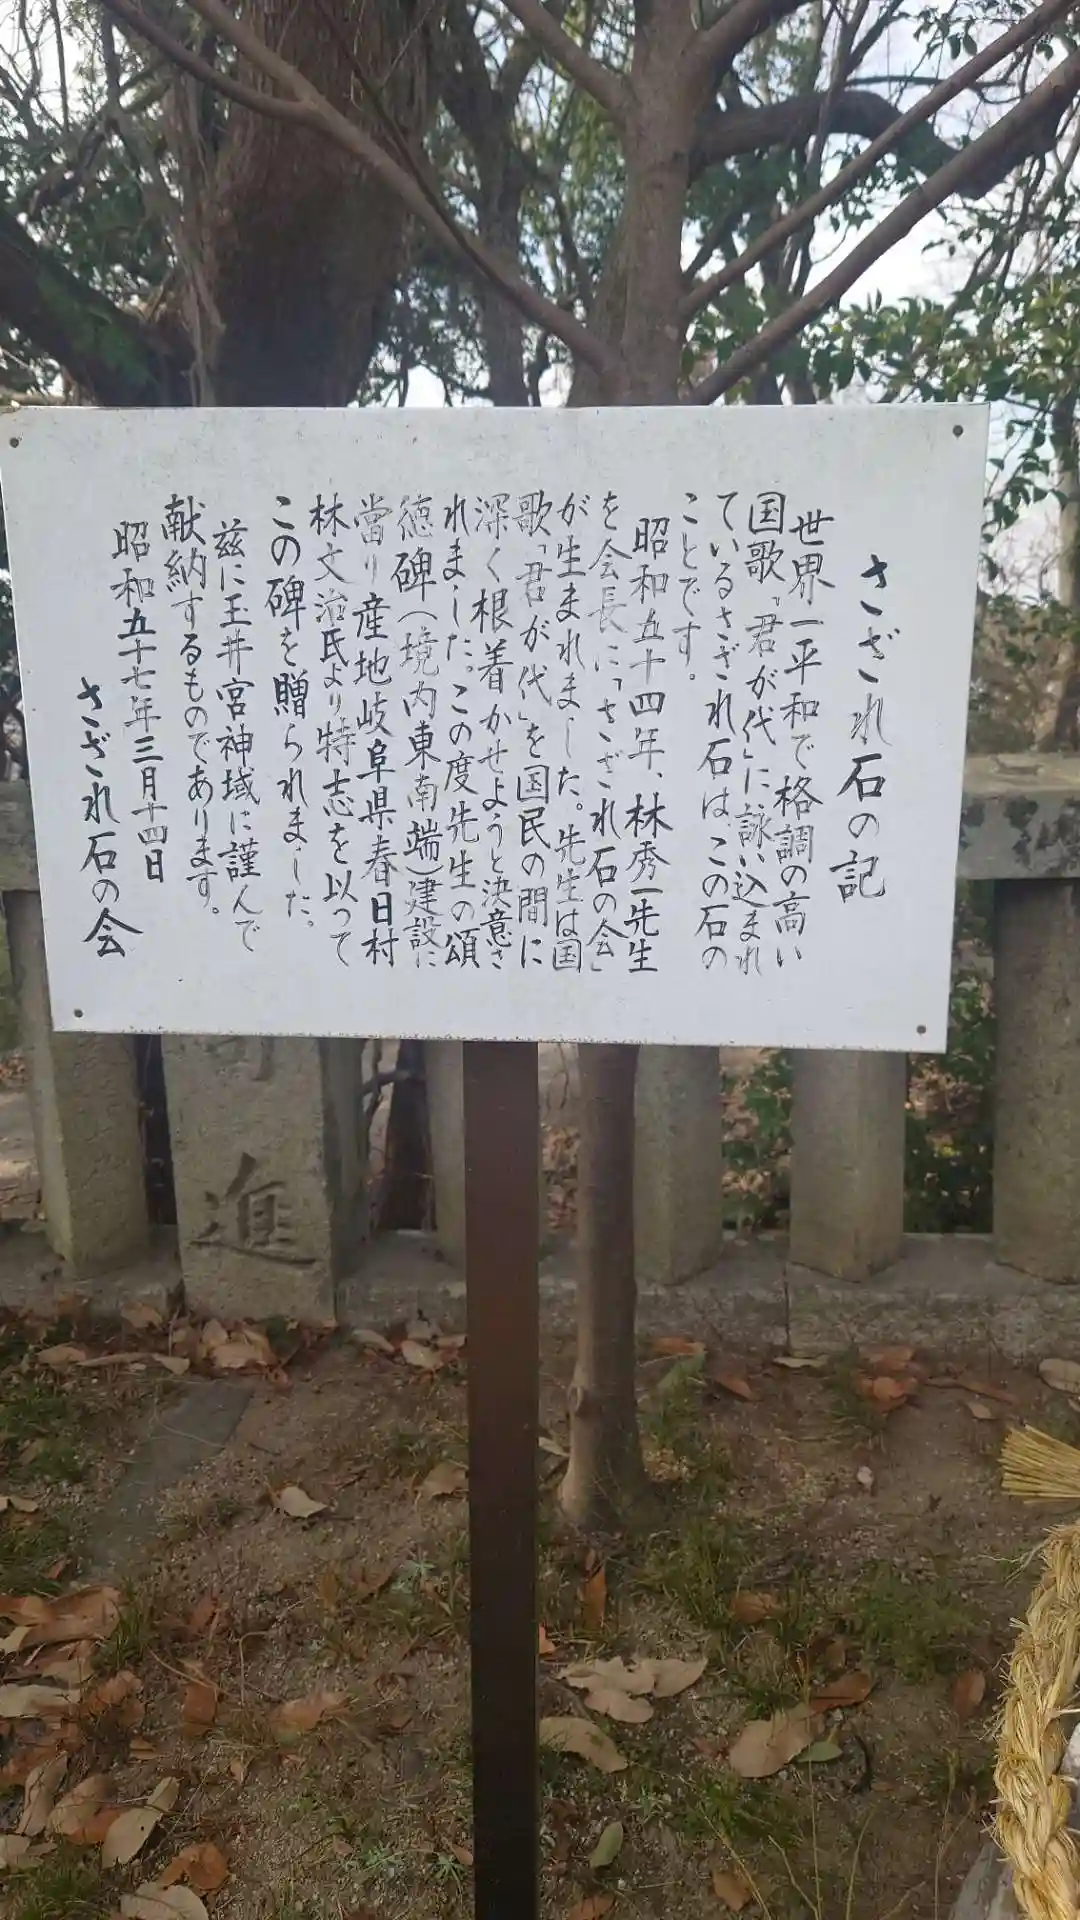 さざれ石の記
世界一平和で格調の高い
国歌「君が代」に詠い込まれ
ているさざれ石はこの石の
ことです。
昭和五十四年、林秀一先生
を会長に「さざれ石の会」
が生まれました。先生は国
歌「君が代」を国民の間に
深く根着かせようと決意さ
れました。この度先生の頌
徳碑(境内東南端)建設に
當り産地岐阜県春日村
林文治氏より特志を以って
この碑を贈られました。
茲に玉井宮神域に謹んで
献納するものであります。
昭和五十七年三月十四日
さざれ石の会
進